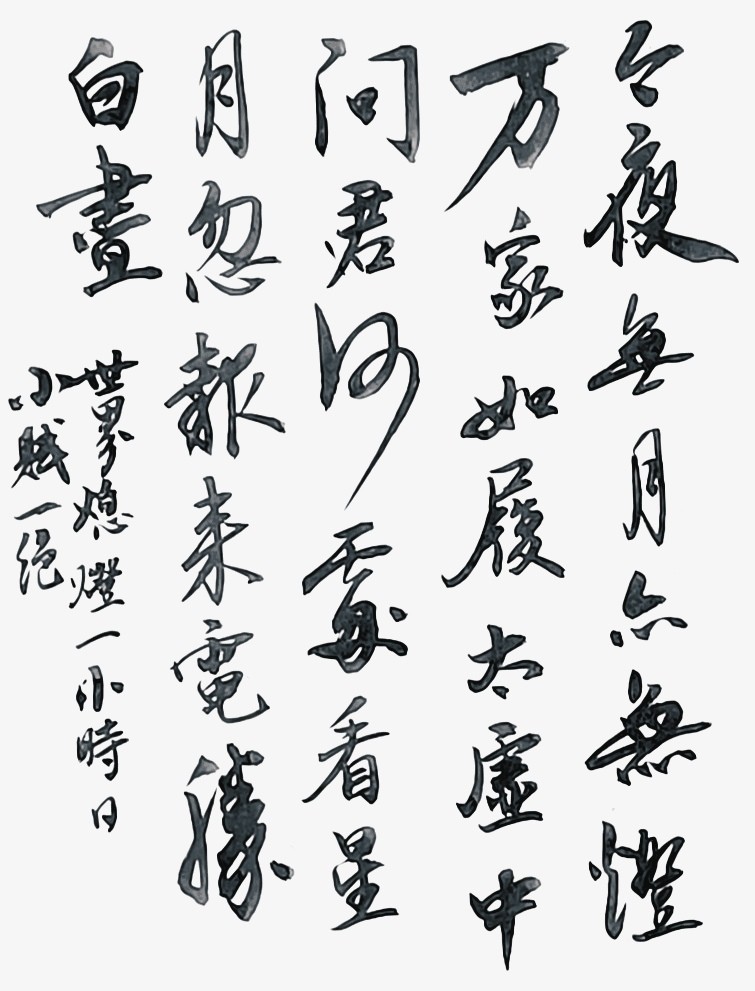 今夜無月亦無燈
万家如履太虛中
问君何處看星
月忽報来電勝
白晝
世界熄燈一小時日
小賦一绝